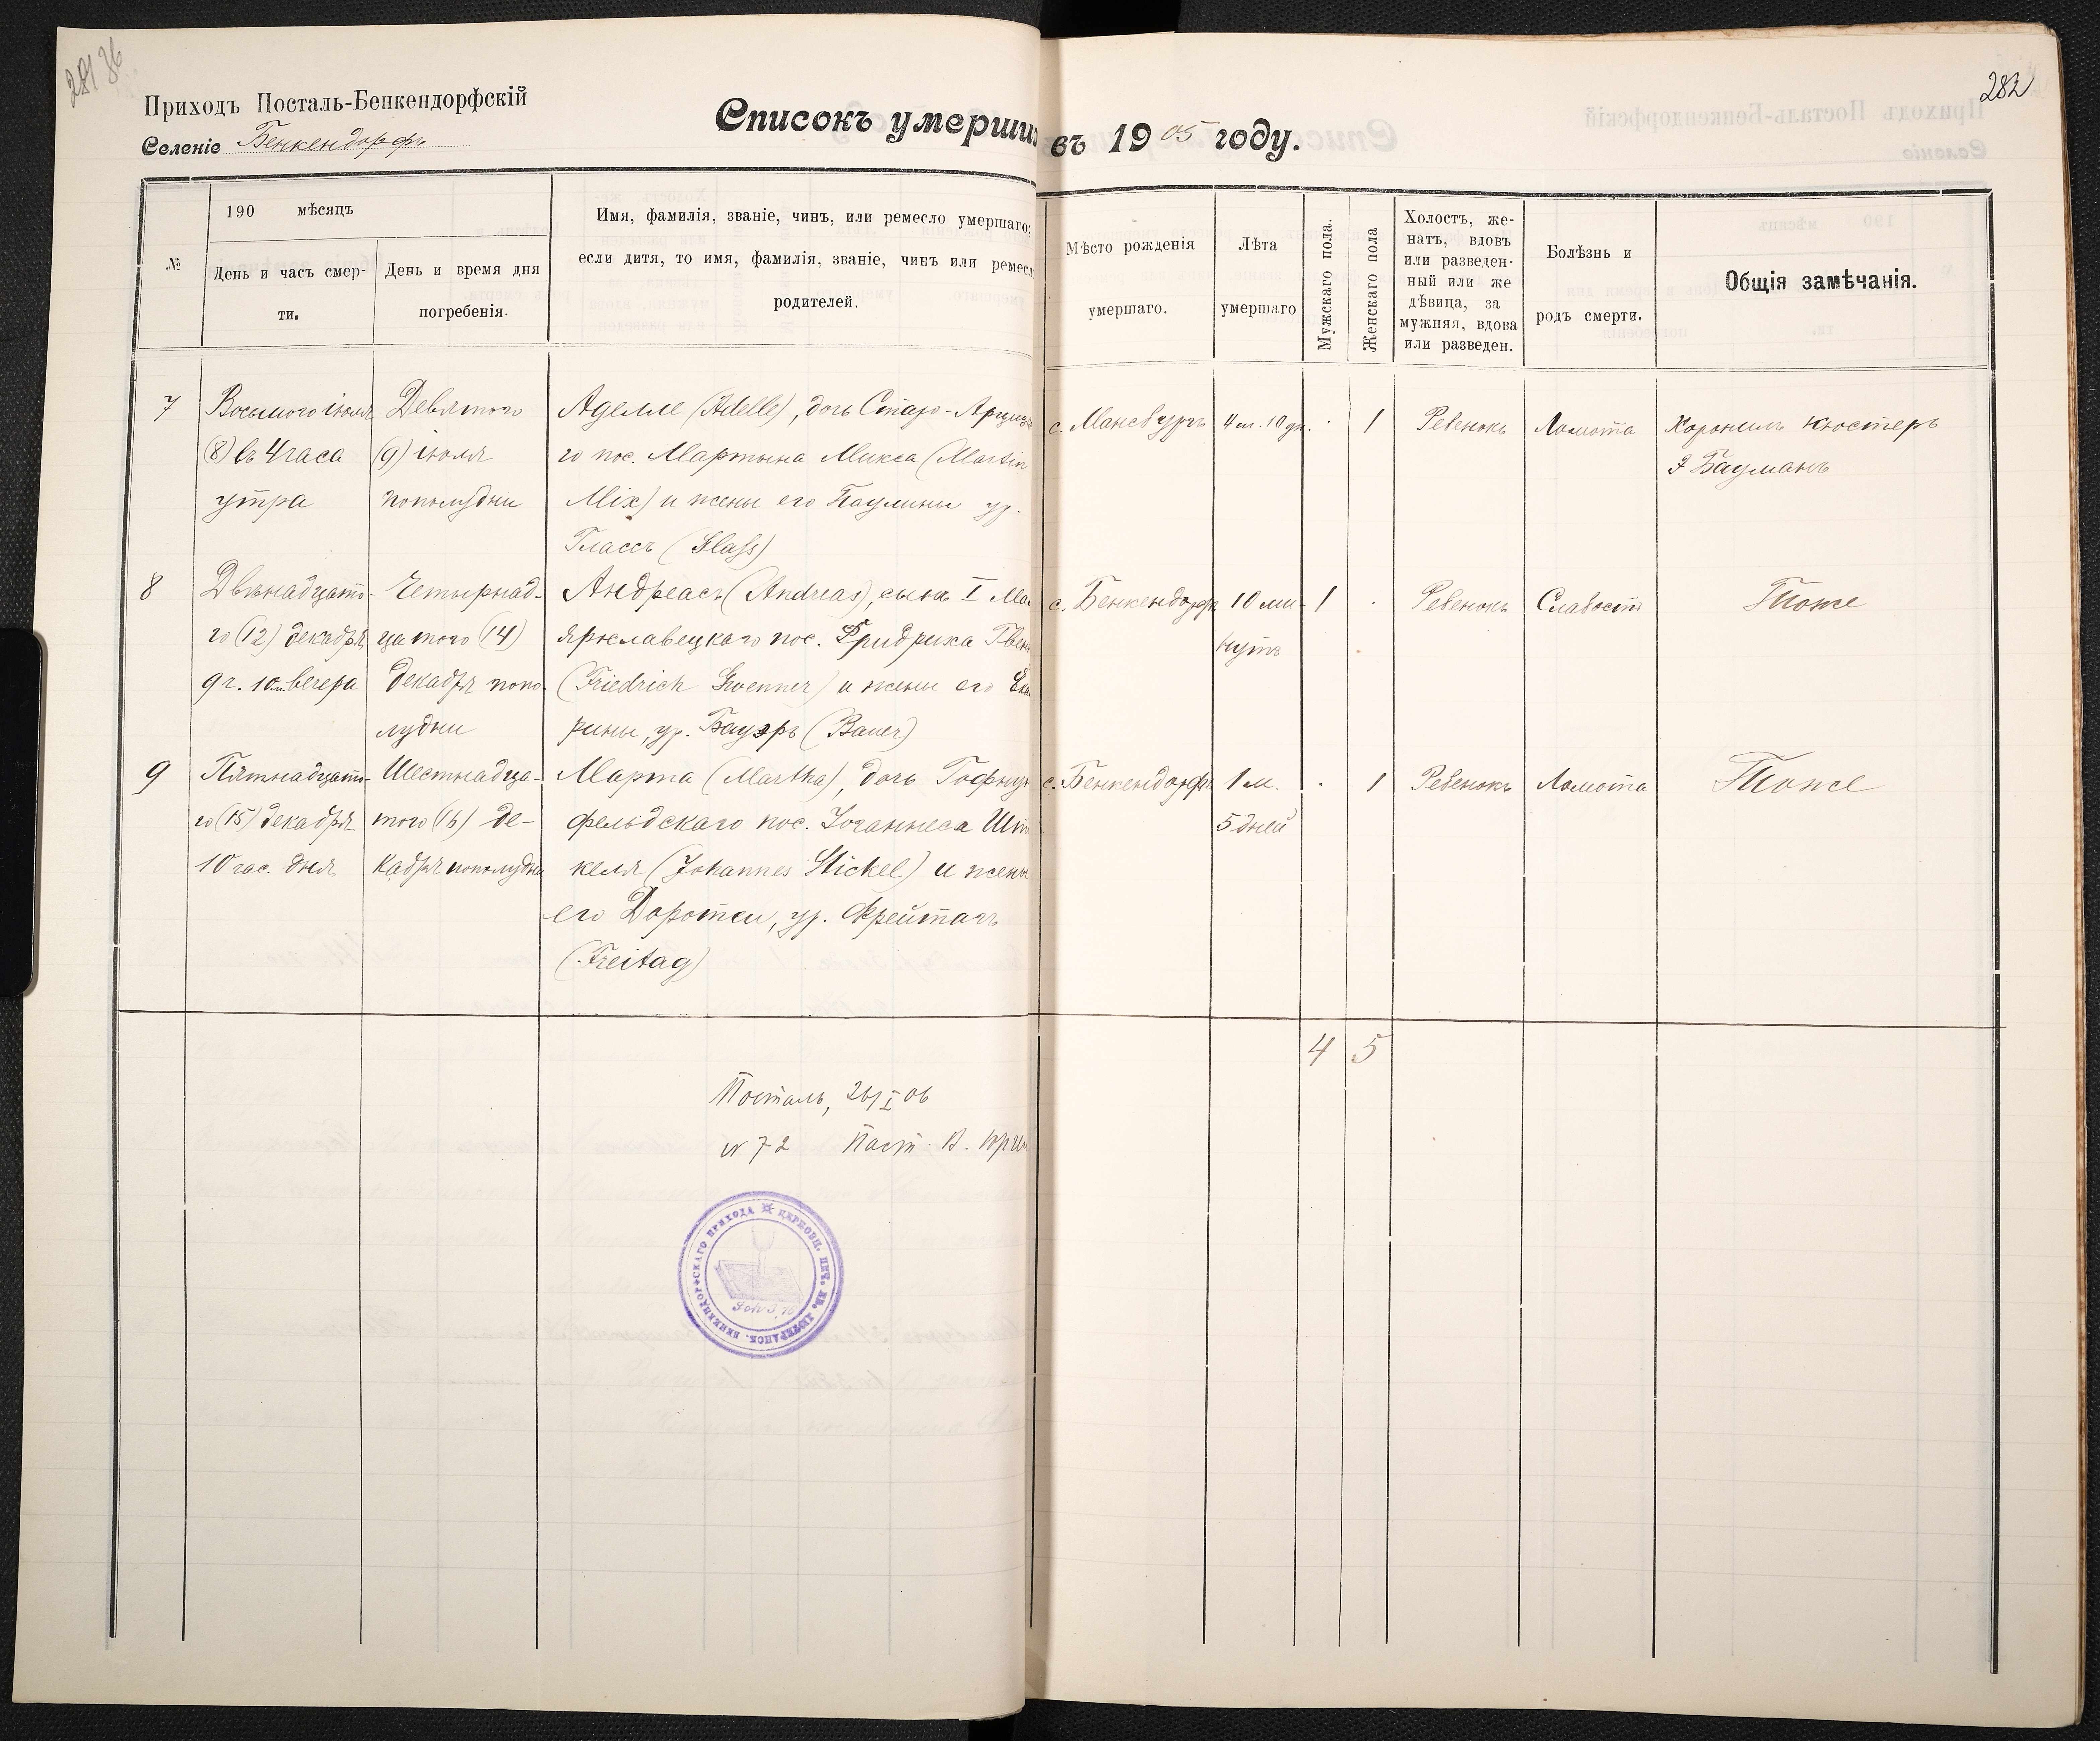 281 36
282
Приходъ Посталь-Бенкендорфскій
Селеніе Бенкендорфъ
Списокъ умерших въ 1905 году.
№
190 мѣсяцъ
День и часъ смер-
ти.
День и время дня
погребенія.
Имя, фамилія, званіе, чинъ, или ремесло умершаго;
если дитя, то имя, фамилія, званіе, чинъ или ремесл
родителей.
Мѣсто рожденія
умершаго.
Лѣта
умершаго
Мужскаго пола.
Женскаго пола
Холостъ, же-
натъ, вдовъ
или разведен-
ный или же
дѣвица, за
мужняя, вдова
или разведен.
Болѣзнь и
родъ смерти.
Общія замѣчанія.
7
Восьмого іюля
(8) въ 4 часа
утра
Девятого
(9) іюля
пополудни
Аделле (Adelle), дочь Старо-Арциз
го пос. Мартына Микса (Martin
Mix) и жены его Паулины ур.
Глассъ (Glaß)
с. Мансбургъ
4 м. 10 дн.
·
1
Ребенокъ
Ломота
Хоронилъ кюстеръ
Э Бауманъ
8
Двѣнадцато-
го (12) декабря
9 ч. 10 м вечера
Четырнад-
цатого (14)
декабря попо-
лудни
Андреасъ (Andreas), сынъ I Мал
ярославецкаго пос. Фридриха Гвен
(Friedrich Gwenner) и жены его Ека
рины, ур. Бауэръ (Bauer)
с. Бенкендорфъ
10 ми-
нутъ
1
·
Ребенокъ
Слабость
Тоже
9
Пятнадцато-
го (15) декабря
10 час. дня
Шестнадца-
того (16) де-
кабря пополудни
Марта (Martha), дочь Гофнун
фельдскаго пос. Іоганнеса Шти
келя (Johannes Stickel) и жены
его Доротеи, ур. Фрейтагъ
(Freitag)
с. Бенкендорфъ
1 м.
5 дней
·
1
Ребенокъ
Ломота
Тоже
4 5
Посталь, 26/I 06
№ 72 Паст. В.
ЦЕРКОВН. ПЕЧ. ЕВ. ЛЮТЕРАНСК. БЕНКЕНДОРФСКАГО ПРИХОДА